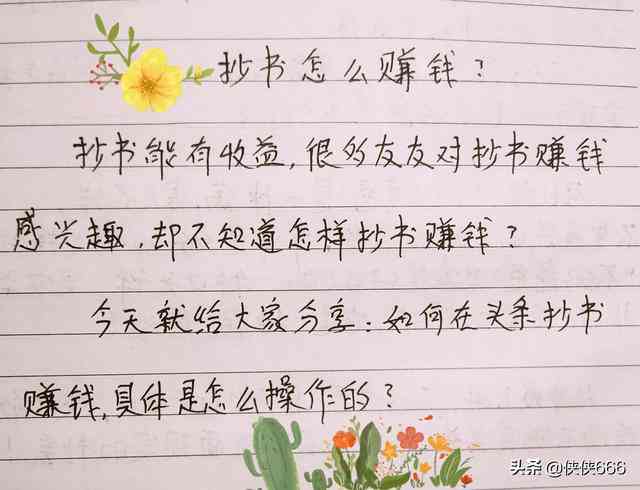 抄书怎么赚钱?
抄书能有收益,很多友友对抄书赚钱
感兴趣,却不知道怎样抄书赚钱?
今天就给大家分享:如何在头条抄书
赚钱,具体是怎么操作的?
头条 @侠侠666